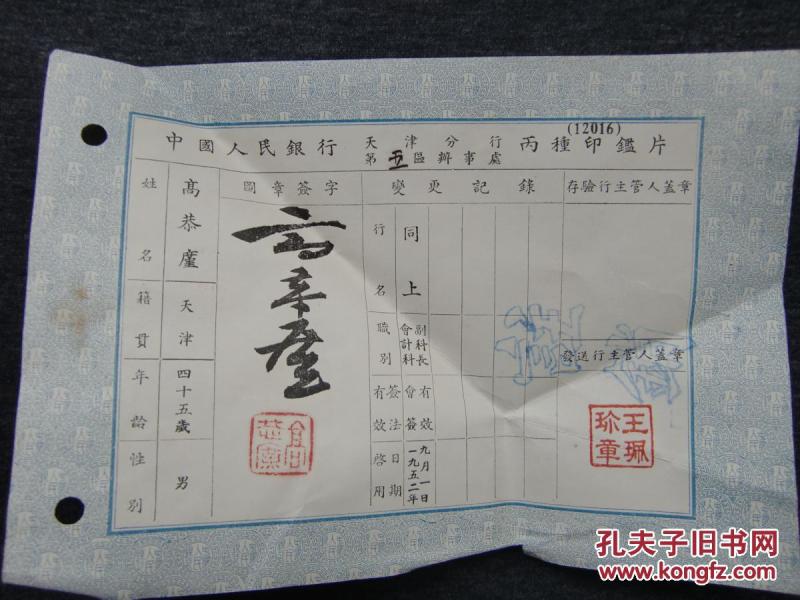 (12016)
中國人民銀行 天津分行 第五區辦事處 丙種印鑑片
姓名 高恭𢊍
籍貫 天津
年齡 四十五歲
性別 男
圖章簽字
變更記錄
行名 同上
職別 會計科副科長
有效簽法 會簽有效
啓用日期 一九五二年九月一日
存驗行主管人蓋章
發送行主管人蓋章
王珮珍章
孔夫子旧书网
www.kongfz.com